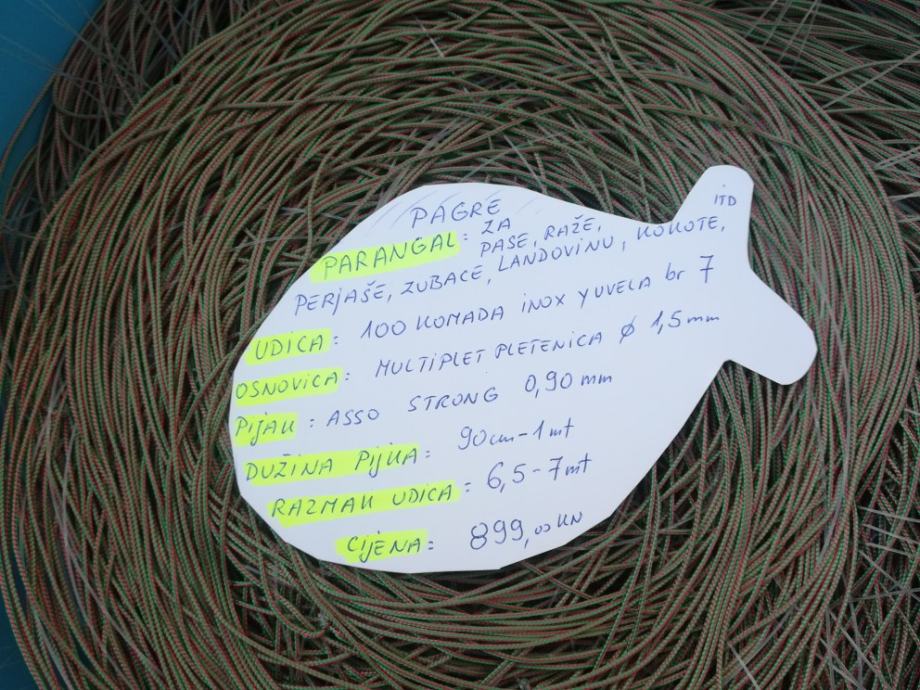 PAGRE
PARANGAL: ZA PASE, RAŽE,
PERJAŠE, ZUBACE, LANDOVINU, KOKOTE,
ITD
UDICA: 100 KOMADA INOX YUVELA br 7
OSNOVICA: MULTIPLET PLETENICA Ø 1,5mm
PIJAK: ASSO STRONG 0,90 mm
DUŽINA PIJKA: 90cm-1mt
RAZMAK UDICA: 6,5-7mt
CIJENA: 899,00 KN